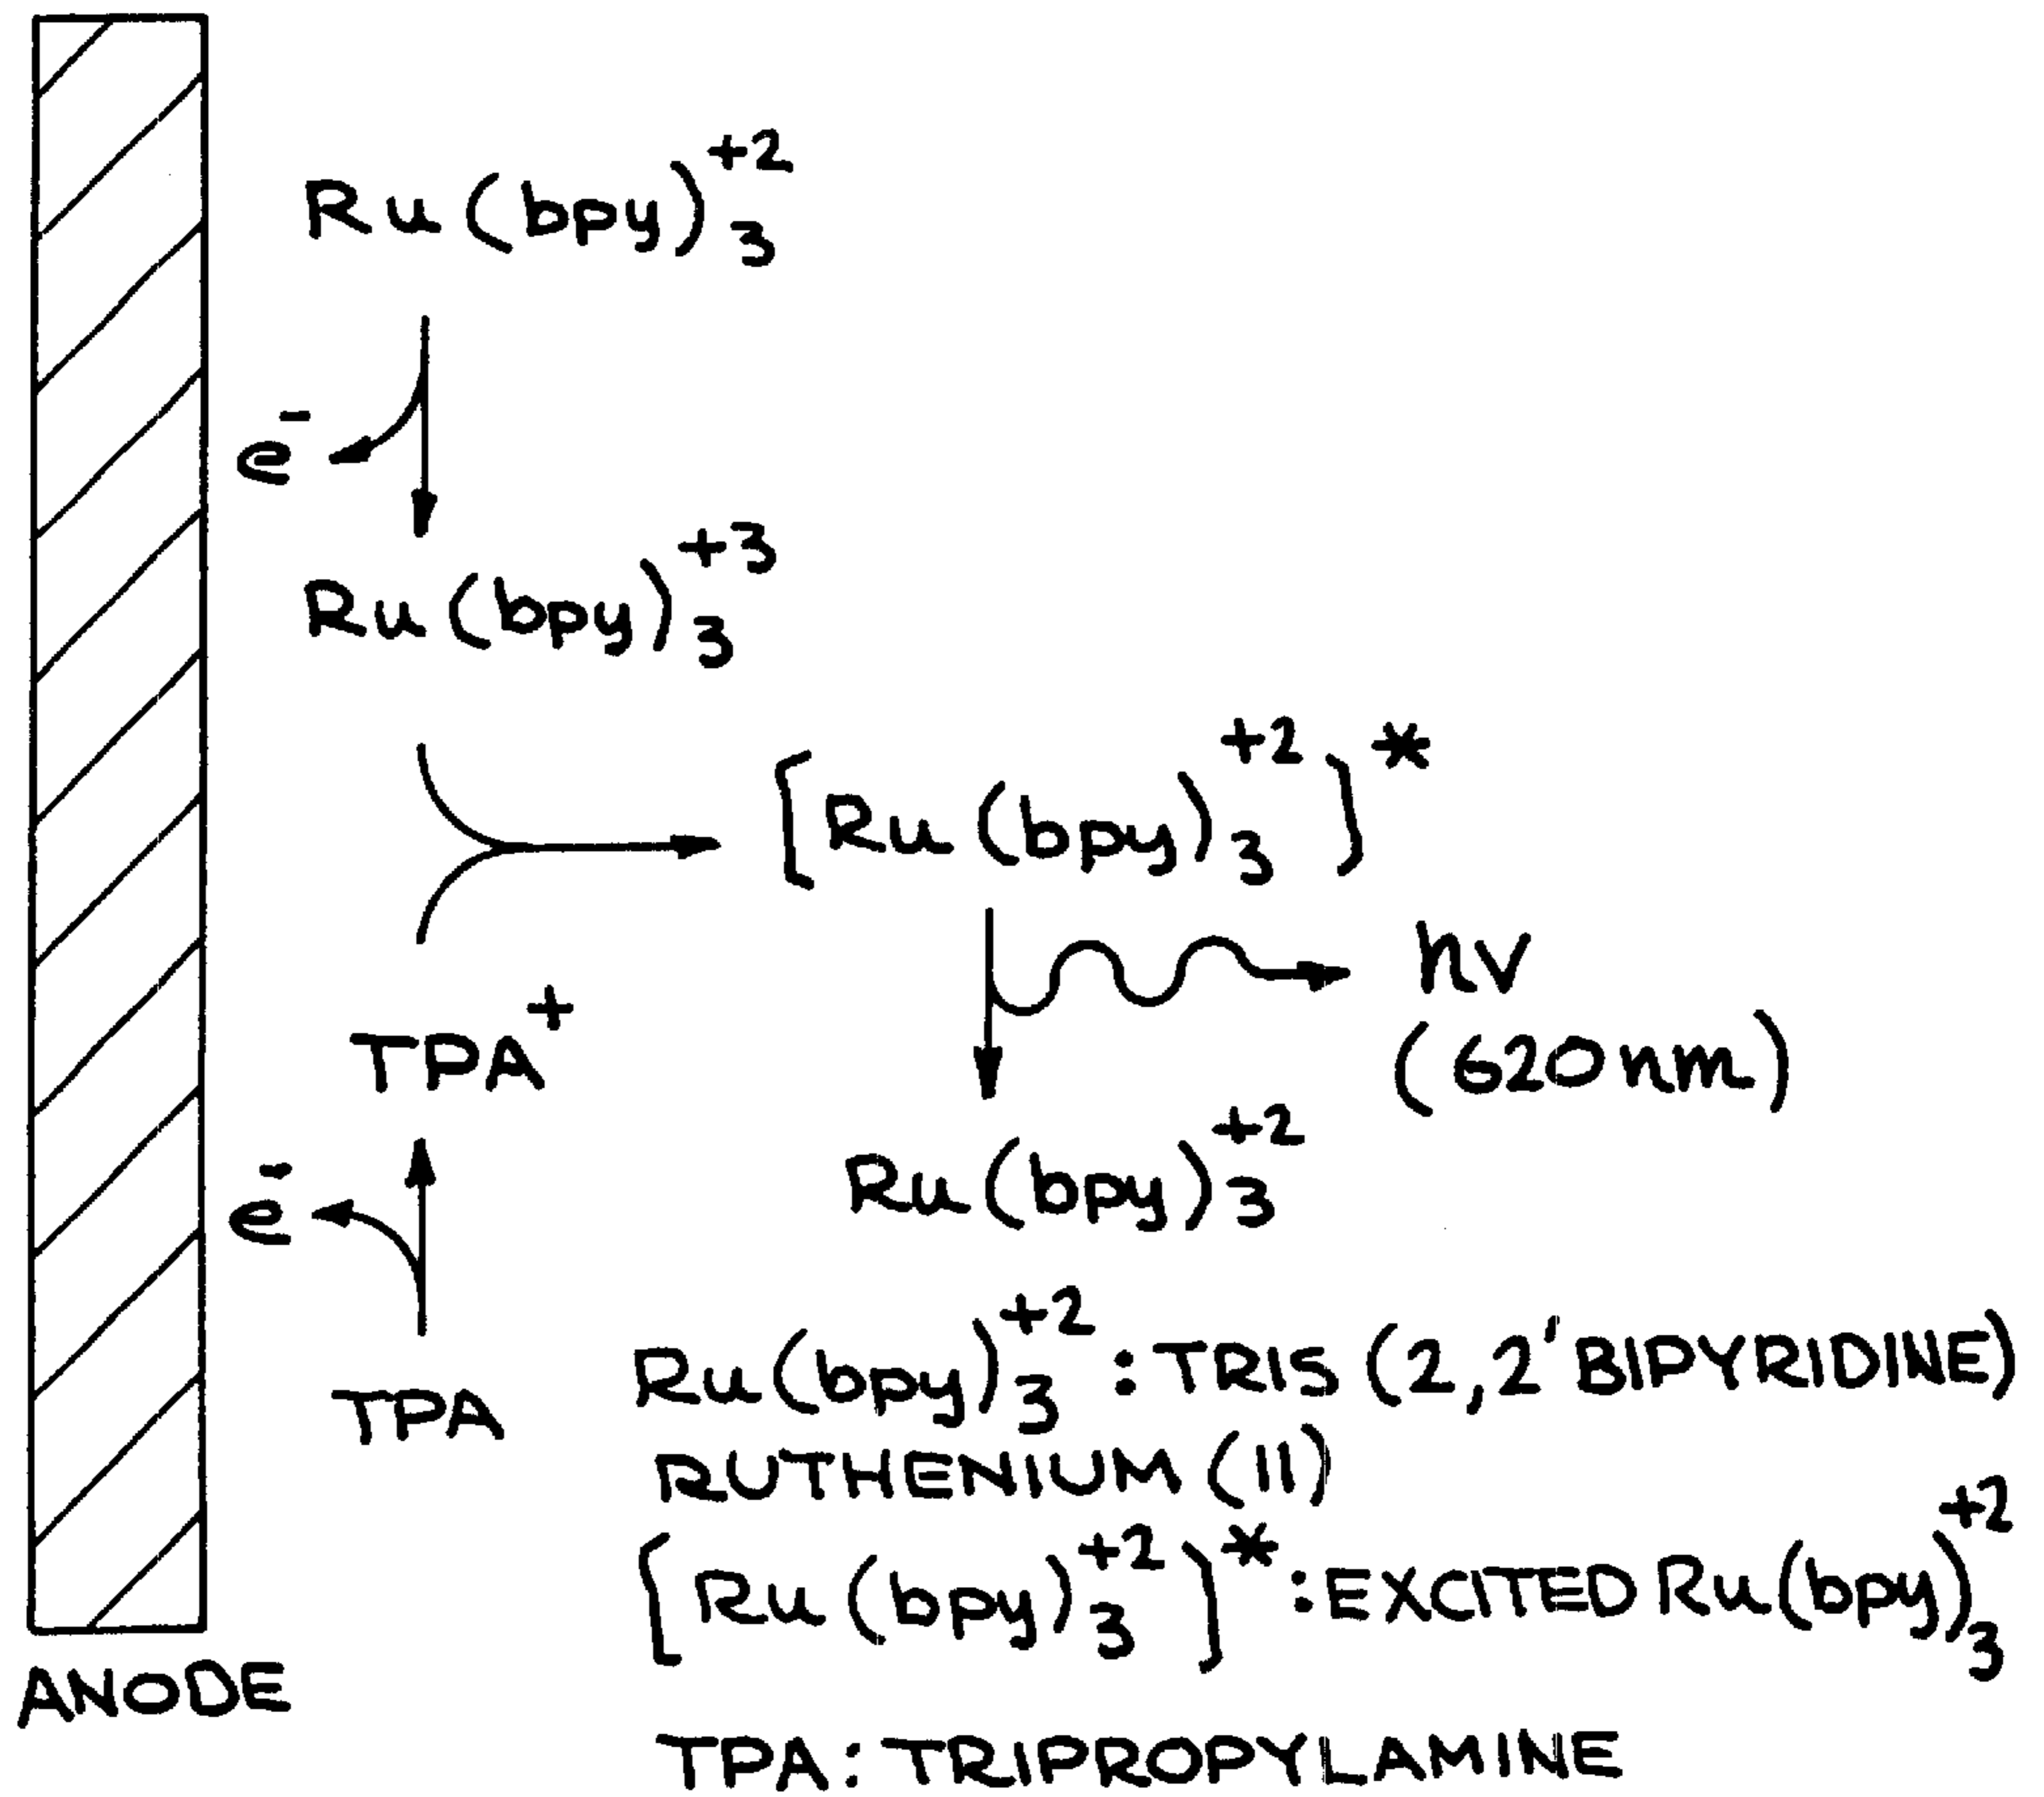 Ru(bpy)₃⁺²
e⁻
Ru(bpy)₃⁺³
[Ru(bpy)₃⁺²]*
hv
(620nm)
TPA⁺
Ru(bpy)₃⁺²
e⁻
TPA
Ru(bpy)₃⁺² : TRIS (2,2'BIPYRIDINE)
RUTHENIUM (II)
[Ru(bpy)₃⁺²]* : EXCITED Ru(bpy)₃⁺²
ANODE
TPA: TRIPROPYLAMINE